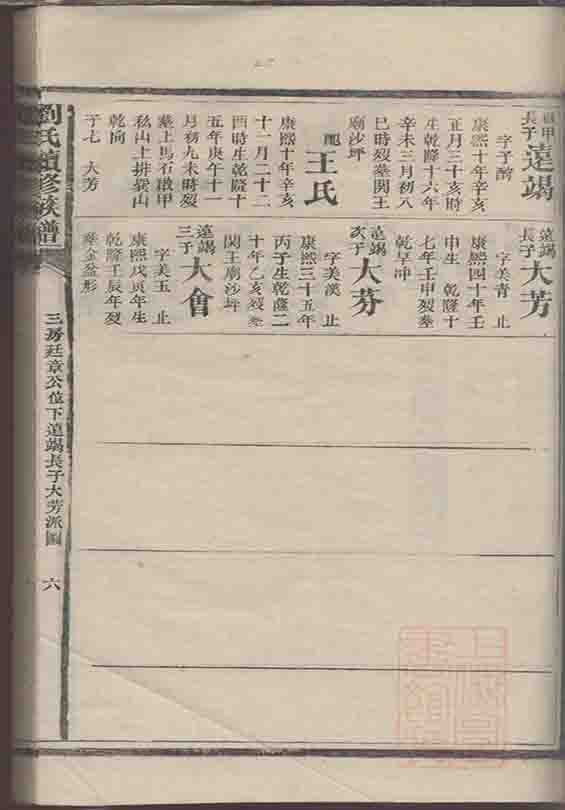 長子遠竭
字子醇
康熙十年辛亥
正月三十亥時
生乾隆十六年
辛未三月初八
巳時歿塟関王
廟沙坪
配王氏
康熙十年辛亥
十一月二十二
酉時生乾隆十
五年庚午十一
月初九未時歿
塟上馬石墩甲
山上排巽山
乾向
子七 大芳
遠竭長子大芳
字美青 止
康熙四十年壬
申生 乾隆十
七年壬申歿塟
乾旱冲
遠竭次子大芬
字美漢 止
康熙三十五年
丙子生乾隆二
十年乙亥歿塟
関王廟沙坪
遠竭三子大會
字美玉 止
康熙戊寅年生
乾隆壬辰年歿
塟金盆形
劉氏續修族譜
三房廷章公位下遠竭長子大芳派圖
六